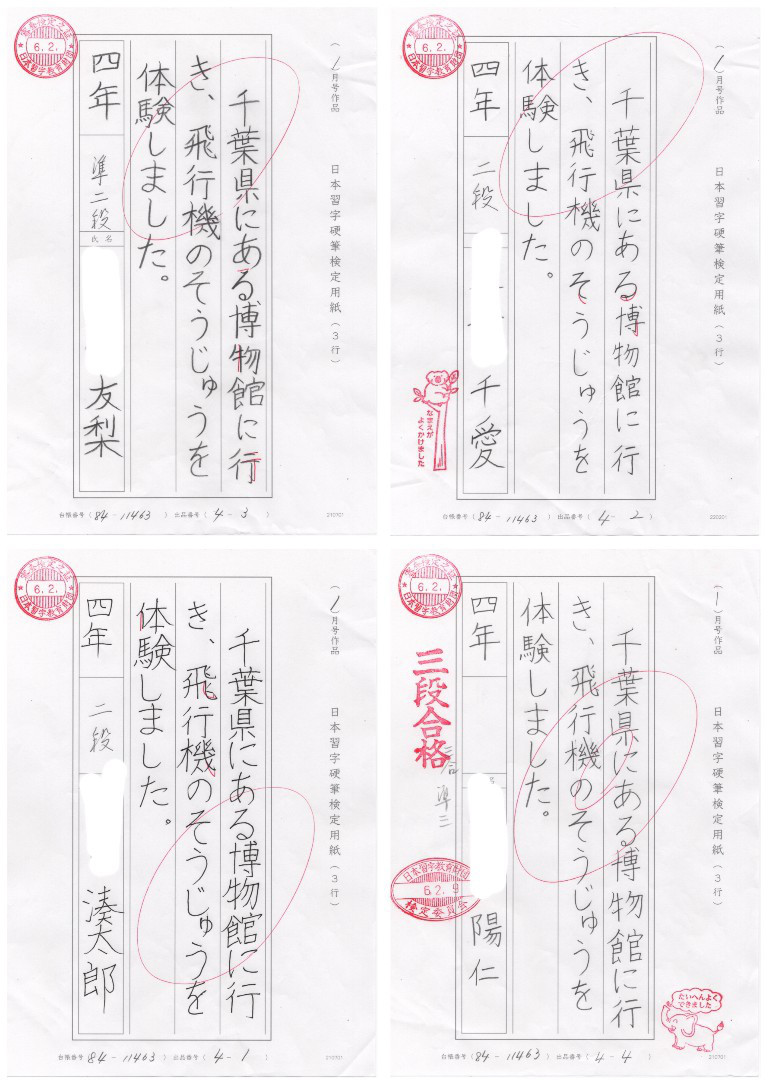 審査検定之証
6.2.
日本習字教育財団
(1)月号作品
日本習字硬筆検定用紙(3行)
千葉県にある博物館に行
き、飛行機のそうじゅうを
体験しました。
四年
準二段
氏名
友梨
台帳番号(84-11463)出品番号(4-3)
210701
審査検定之証
6.2.
日本習字教育財団
(1)月号作品
日本習字硬筆検定用紙(3行)
千葉県にある博物館に行
き、飛行機のそうじゅうを
体験しました。
四年
二段
千愛
なまえが
よくかけました
台帳番号(84-11463)出品番号(4-2)
審査検定之証
6.2.
日本習字教育財団
(1)月号作品
日本習字硬筆検定用紙(3行)
千葉県にある博物館に行
き、飛行機のそうじゅうを
体験しました。
四年
二段
湊太郎
台帳番号(84-11463)出品番号(4-1)
210701
審査検定之証
6.2.
日本習字教育財団
(1)月号作品
日本習字硬筆検定用紙(3行)
千葉県にある博物館に行
き、飛行機のそうじゅうを
体験しました。
四年
名
陽仁
三段合格
準三
日本習字教育財団
6.2.9
検定委員会
たいへんよく
できました
台帳番号(84-11463)出品番号(4-4)
210701